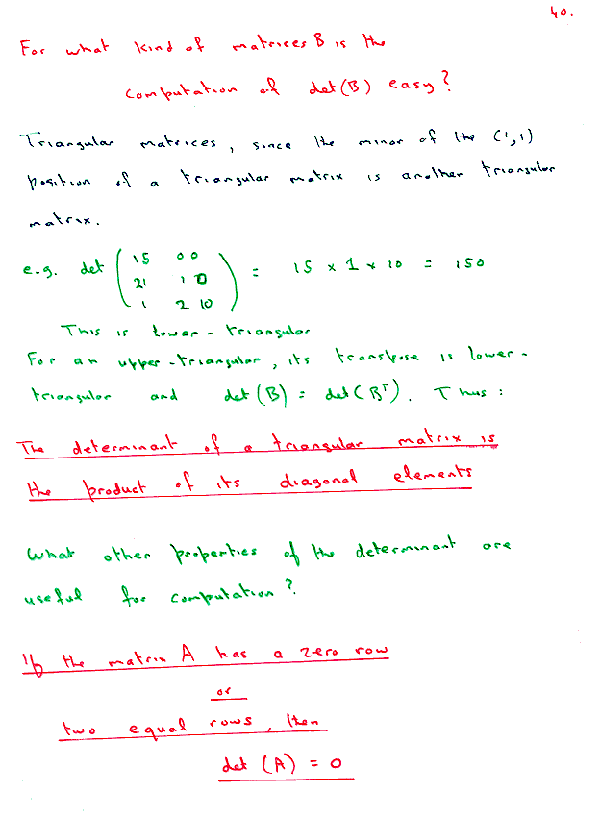 40.
For what kind of matrices B is the
computation of det(B) easy?
Triangular matrices, since the minor of the (1,1)
position of a triangular matrix is another triangular
matrix.
e.g. det ( 15 0 0
21 1 0
1 2 10 ) = 15 × 1 × 10 = 150
This is lower-triangular
For an upper-triangular, its transpose is lower-
triangular and det(B) = det(Bᵀ). Thus:
The determinant of a triangular matrix is
the product of its diagonal elements
What other properties of the determinant are
useful for computation?
If the matrix A has a zero row
or
two equal rows, then
det (A) = 0